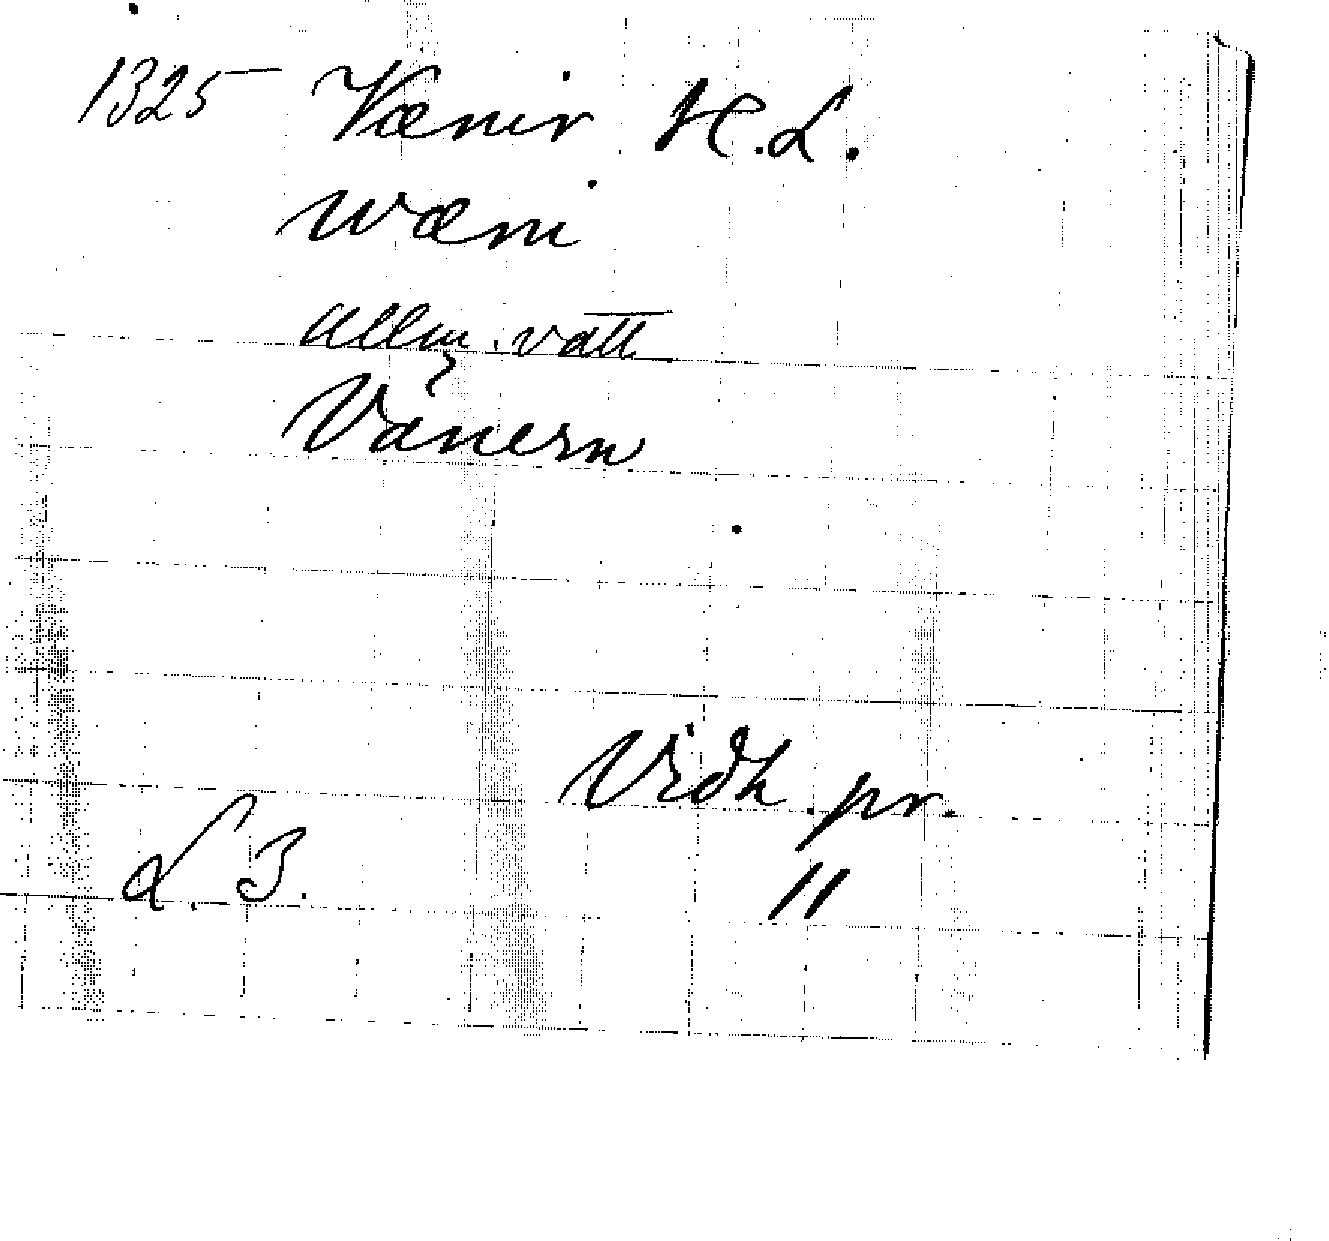 1325 Vænir H.L.
wæni
allm. vatt
Vänern
Vidh. pr.
L. B. 11